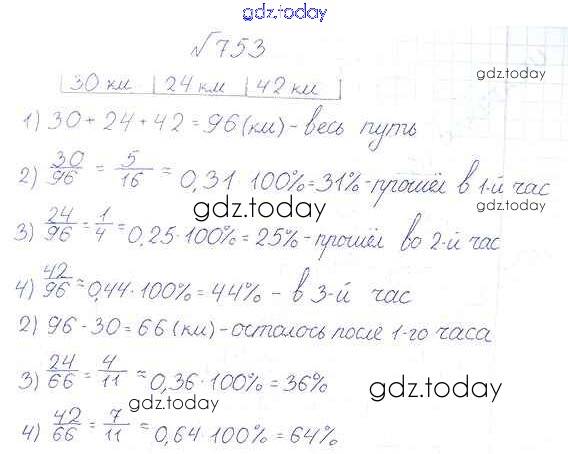 gdz.today
№753
gdz.today
30 км 24 км 42 км
1) 30 + 24 + 42 = 96 (км) - весь путь
2) 30/96 = 5/16 = 0,31 · 100% = 31% - прошёл в 1-й час
gdz.today
gdz.today
3) 24/96 = 1/4 = 0,25 · 100% = 25% - прошёл во 2-й час
4) 42/96 = 0,44 · 100% = 44% - в 3-й час
2) 96 - 30 = 66 (км) - осталось после 1-го часа
3) 24/66 = 4/11 = 0,36 · 100% = 36%
gdz.today
gdz.today
4) 42/66 = 7/11 = 0,64 · 100% = 64%